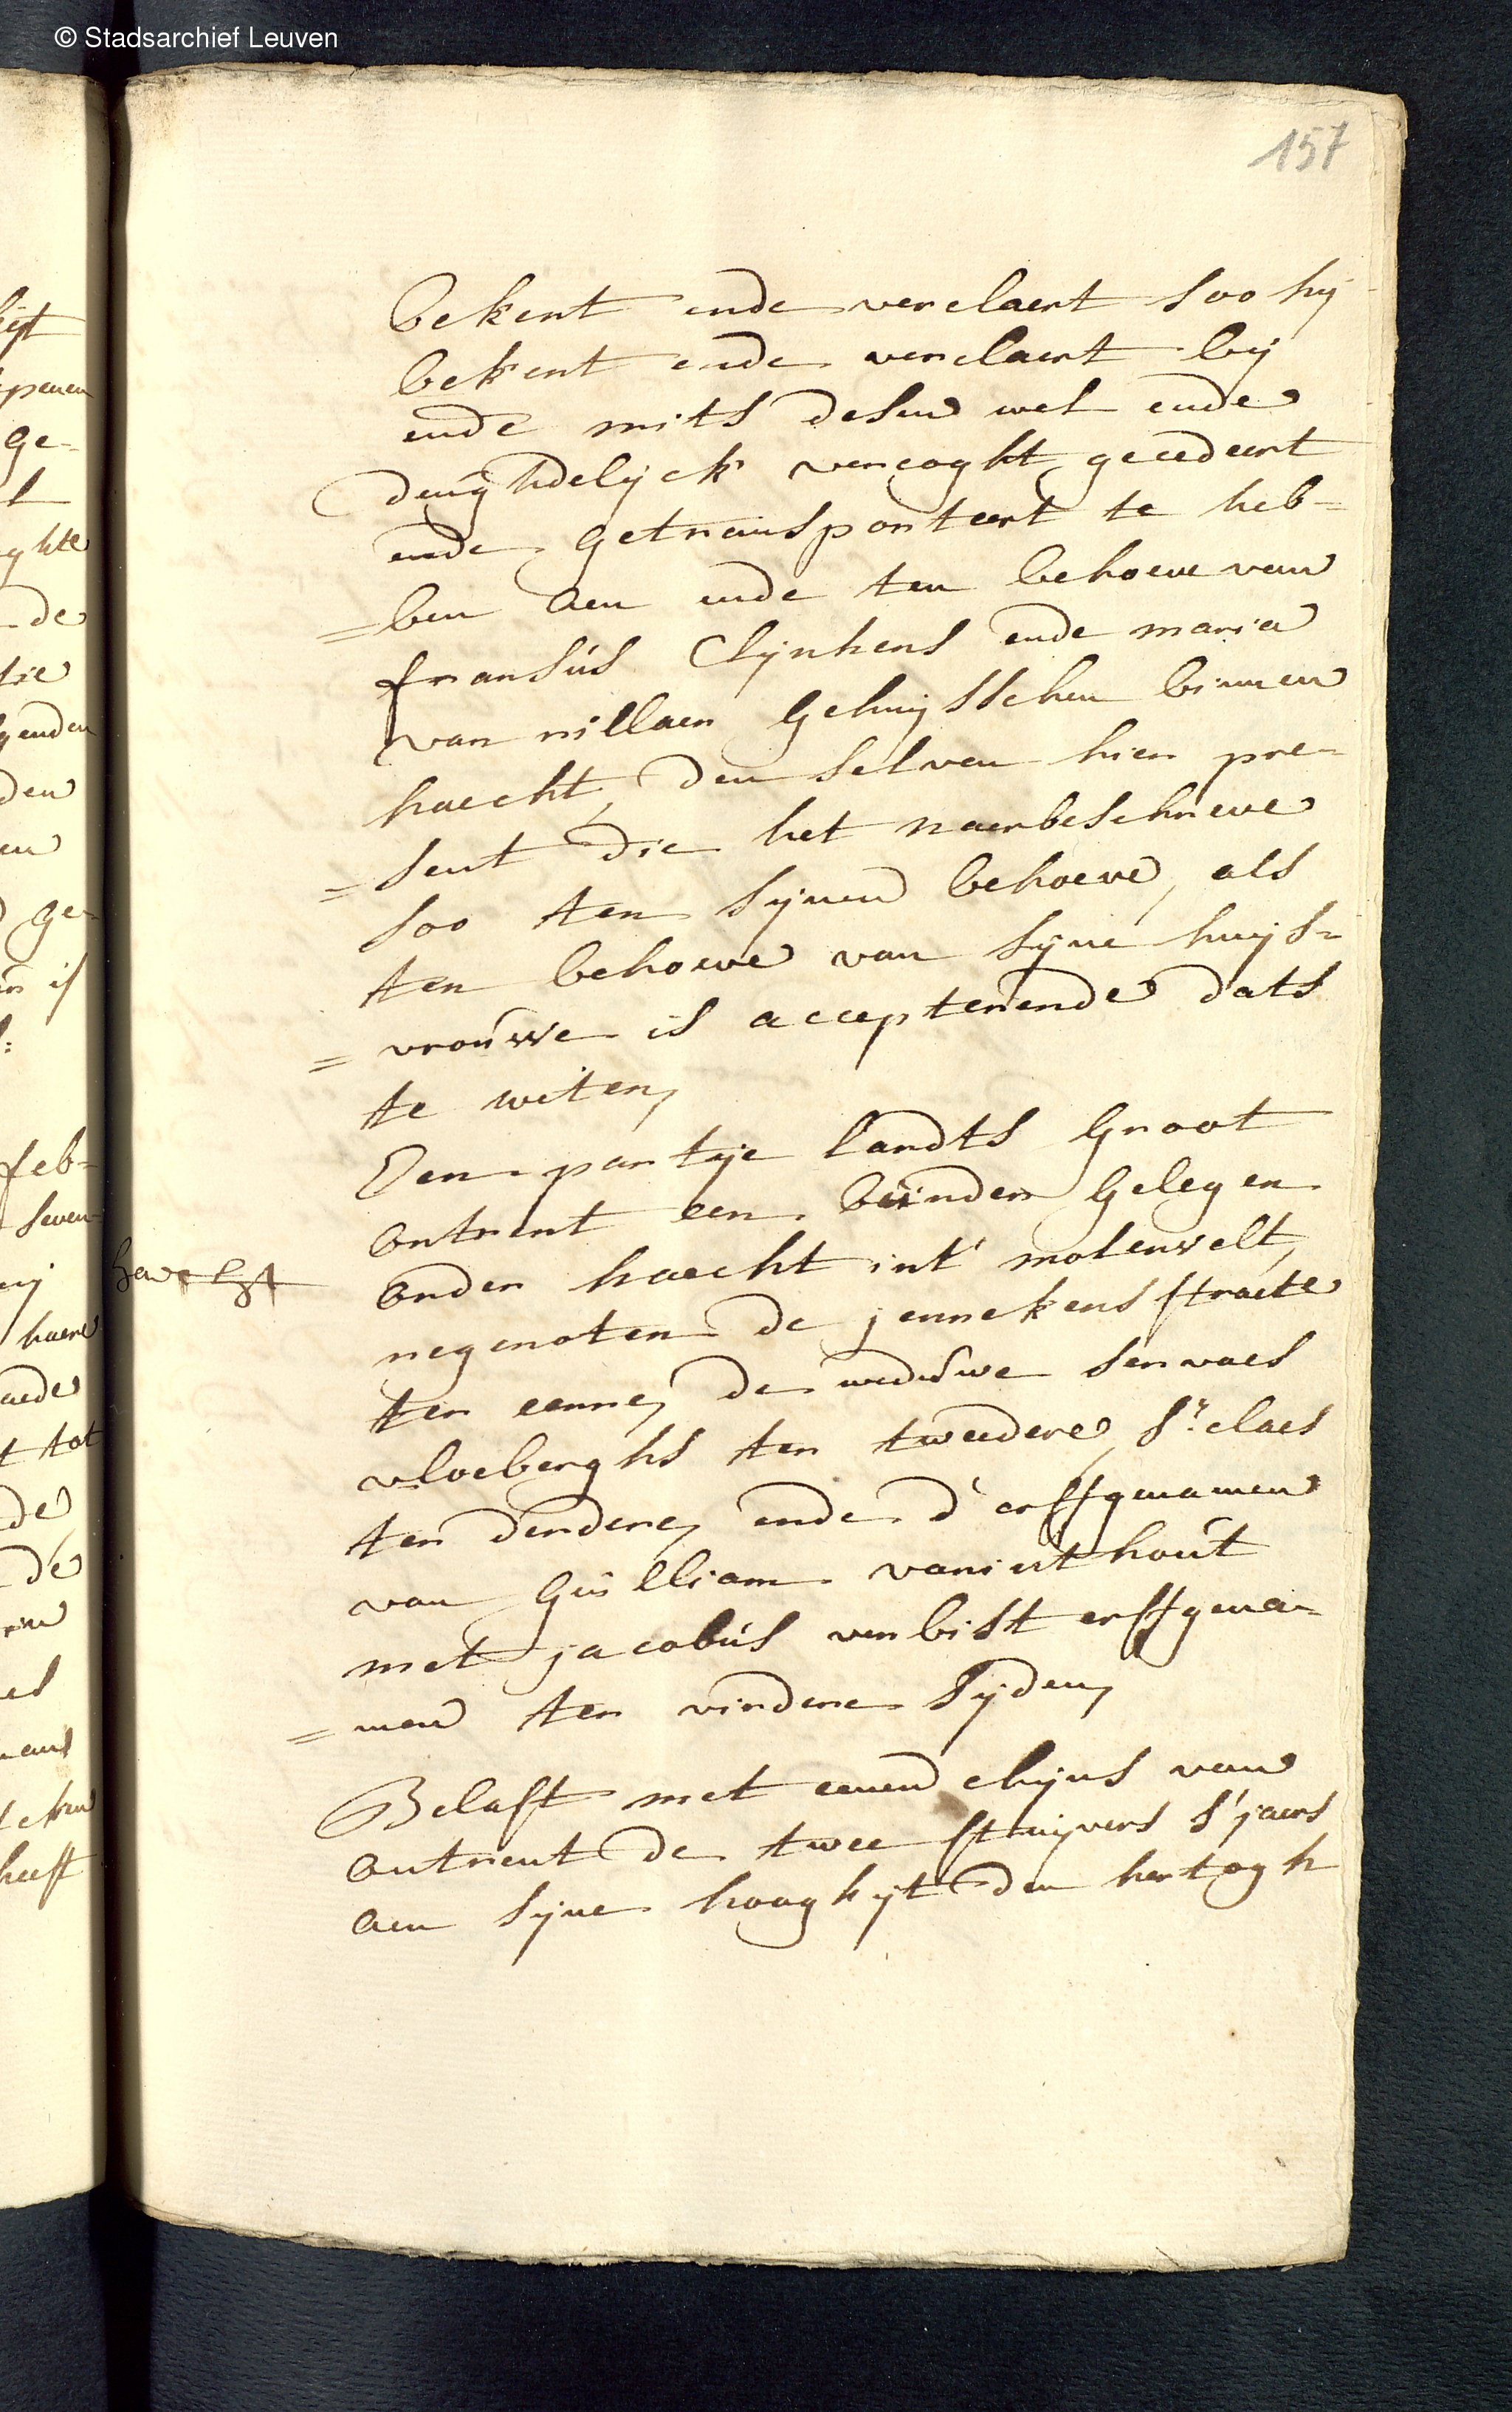 © Stadsarchief Leuven
157
bekent ende verclaert soo hij
bekent ende verclaert bij
ende mits desen wel ende
deughdelijck vercoght gecedeert
ende getransporteert te heb=
=ben aen ende ten behoeve van
fransús Clijnhens ende maria
van nillaer gehuijsschen binnen
haecht, den selven hier pre=
=sent die het naerbeschreve
soo ten sijnen behoeve, als
ten behoeve van sijne huijs=
=vroúwe is accepterende dats
te weten,
Een partije landts groot
ontrent een búnder gelegen
onder haecht int' molenvelt,
regenoten de jennekens straete
ter eenre, de weduwe servaes
vloeberghs ter tweedere, sr. claes
ter derdere, ende d'erffgenamen
van Guilliam van int hout
met jacobús verbist erffgena=
=men ter virdere sijden,
Belast met eenen chijns van
ontrent de twee stuijvers s'jaers
aen sijne hooghijt den hertogh